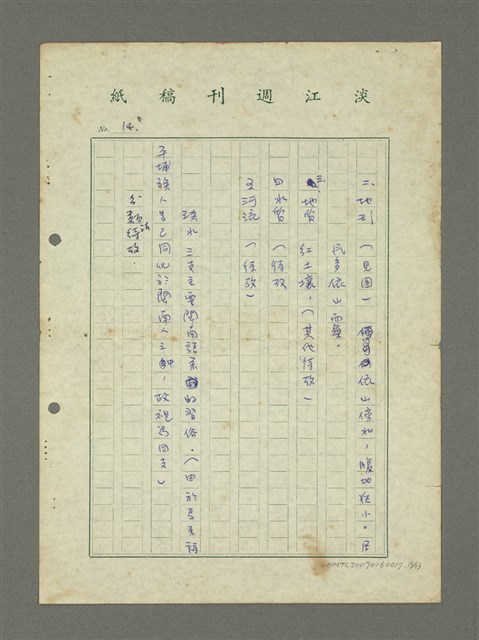 淡江週刊稿紙
No. 14.
二、地形(見圖) 依山傍水,腹地狹小。居
民多依山而築。
三、地質 紅土壤,(其他待考)
四水質 (待考)
五河流 (待考)
淡水 三支主要閩南語系的習俗。(由於
平埔族人皆已同化於閩南人之中,故視為同支)
分類待考。
NMTL20070160017